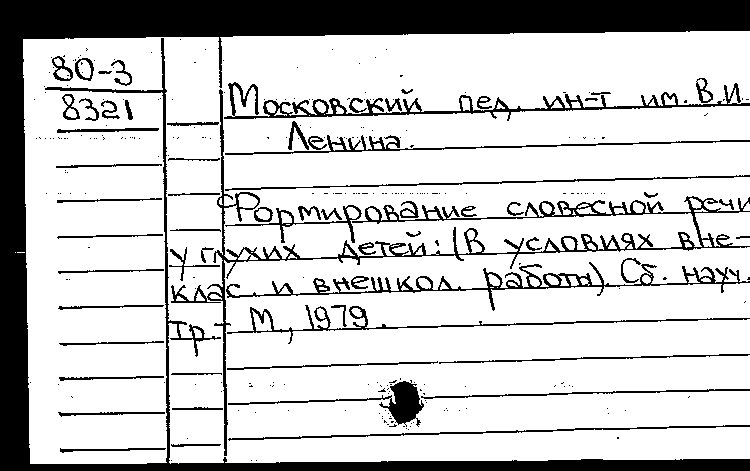 80-3
8321
Московский пед. ин-т им. В.И.
Ленина.
Формирование словесной речи
у глухих детей: (В условиях вне-
клас. и внешкол. работы). Сб. науч.
тр.- М., 1979.